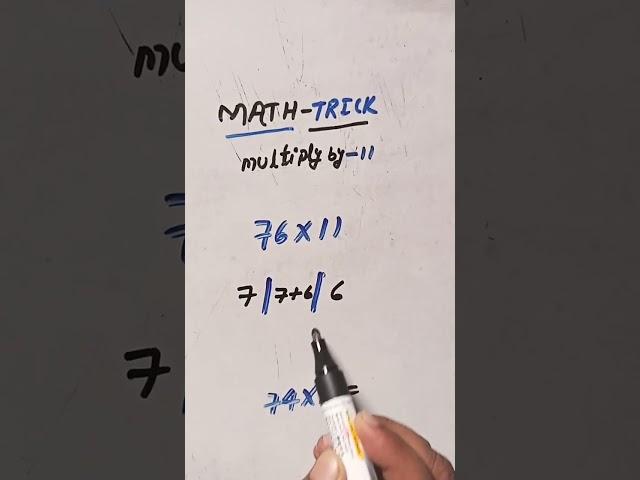 MATH-TRICK
multiply by-11
76x11
7|7+6|6
74x =